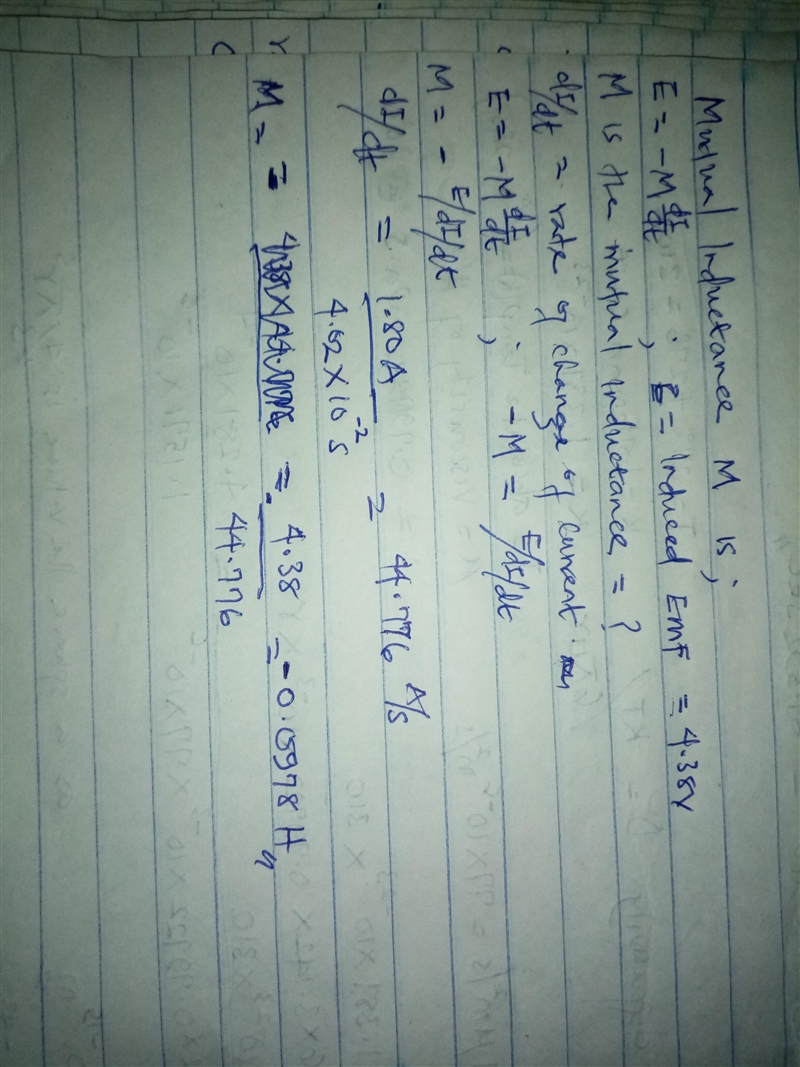 Mutual Inductance M is;
E = -M dI/dt ; E = Induced Emf = 4.38V
M is the mutual Inductance = ?
dI/dt = rate of change of current.
E = -M dI/dt ; -M = E/dI/dt
M = - E/dI/dt
dI/dt = 1.80A / 4.02 X 10^-2 s = 44.776 A/s
M = - 4.38 / 44.776 = -0.0978 H